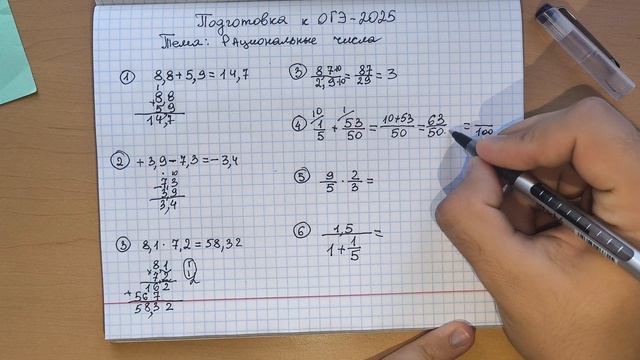 Подготовка к ОГЭ-2025
Тема: Рациональные числа
① 8,8 + 5,9 = 14,7
1
8,8
+ 5 9
14,7
② + 3,9 - 7,3 = - 3,4
· 10
- 7,3
3,9
3,4
③ 8,1 · 7,2 = 58,32
8 1
× 7,2
1 6 2
+ 5 6 7
5 8,3 2
③ 8,7·10 / 2,9·10 = 87/29 = 3
④ 1/5 + 53/50 = 10+53/50 = 63/50 = /100
⑤ 9/5 · 2/3 =
⑥ 1,5 / 1 + 1/5 =